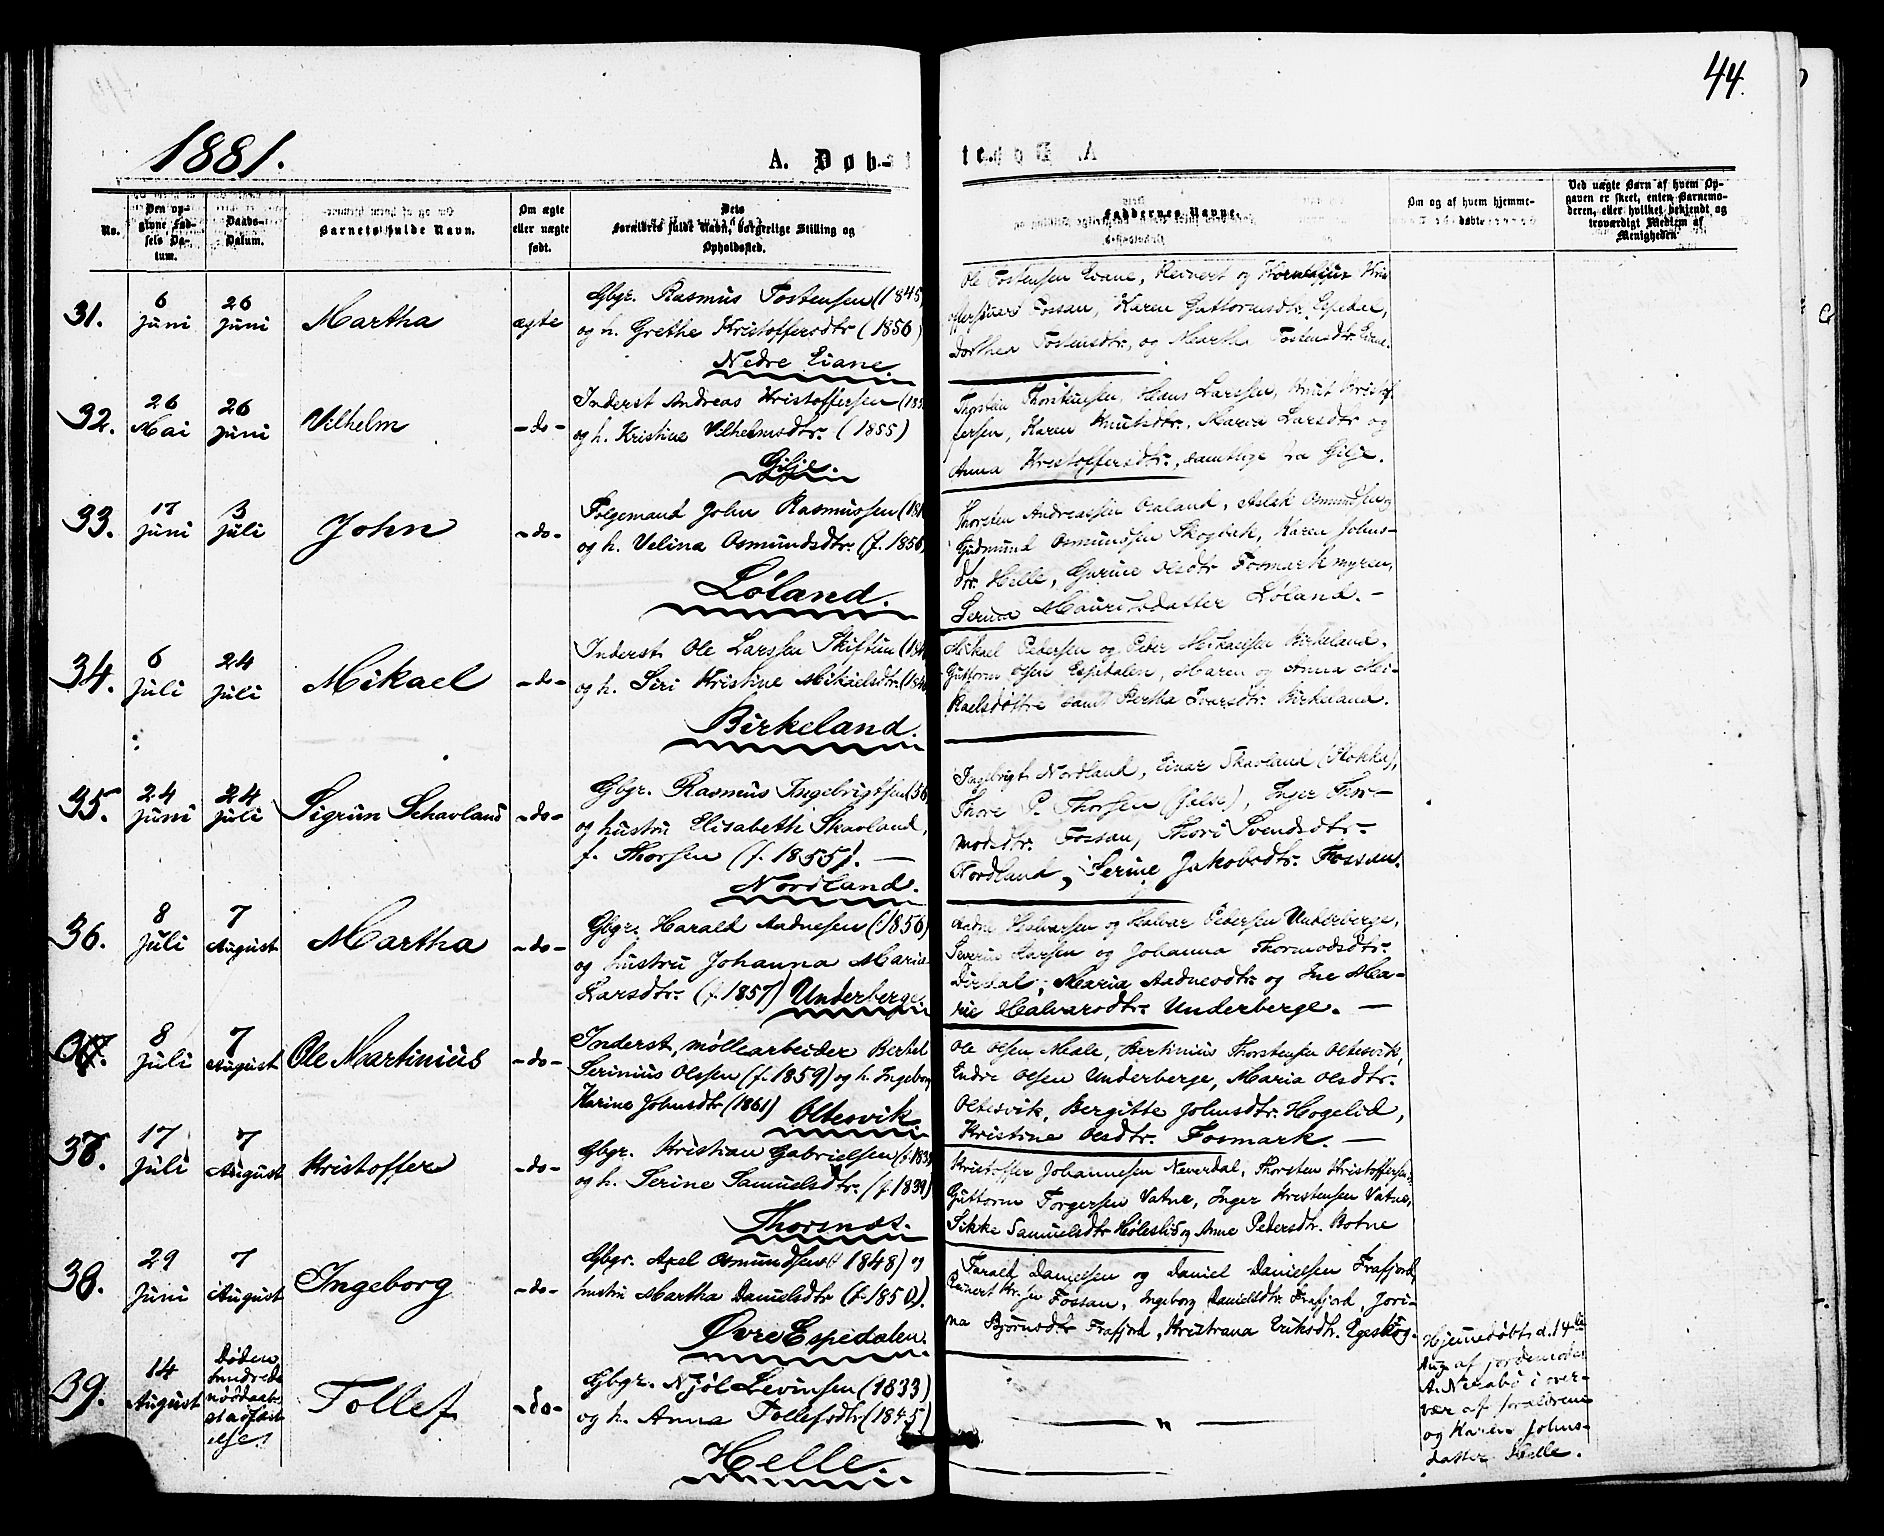 44.
1881.
A. Døbte.
No.
Den opgivne Fødsels Datum.
Daabs-Datum.
Barnets fulde Navn.
Om ægte eller uægte født.
Dets Forældres fulde Navn, borgerlige Stilling og Opholdssted.
Faddernes Navne.
Om og af hvem hjemmedøbt.
Ved uægte Børn af hvem Opgaven er skeet, enten Barnemoderen, eller hvilket bekjendt og troværdigt Medlem af Menigheden.
31.
6 Juni
26 Juni
Martha
ægte
Gbgr. Rasmus Tostensen (1845)
og h. Grethe Kristoffersdtr (1856)
Nedre Eiane.
Ole Tostensen Eiane, Reinert og Kris-
offersen Fossan, Karen Guttormsdtr. Espedal,
Dorthea Tostensdtr, og Martha Tostensdtr. Eiane.
32.
26 Mai
26 Juni
Vilhelm
-do-
Inderst Andreas Kristoffersen (185
og h. Kristine Vilhelmsdtr. (1855)
Gilje.
Thorstein Thorstensen, Hans Larssen, Knut Kristof-
fersen, Karen Knutsdtr., Maria Larsdtr og
Anna Kristoffersdtr., samtlige fra Gilje.
33.
17 Juni
3 Juli
John
-do-
Følgemand John Rasmussen (181
og h. Velina Osmundsdtr. (f. 1856)
Løland.
Thorsten Andreassen Oaland, Aslak Osmundsen og
Gudmund Osmundsen Skogbak, Karen Johns-
dtr. Helle, Gurine Olsdtr Fosmarkmyren,
Serina Mauritsdatter Løland. -
34.
6 Juli
24 Juli
Mikael
-do-
Inderst Ole Larssen Skiftun (184
og h. Siri Kristine Mikaelsdtr. (184
Birkeland.
Mikael Pedersen og Peder Mikaelsen Birkeland.
Guttorm Olsen Espedalen, Maren og Anna Mi-
kaelsdøttre samt Bertha Ivarsdtr. Birkeland.
35.
24 Juni
24 Juli
Sigrun Schavland
-do-
Gbgr. Rasmus Ingebrigtsen (56)
og hustru Elisabeth Skavland,
f. Thorsen (f. 1855). -
Nordland.
Ingebrigt Nordland, Einar Skavland (Klokker),
Thore P. Thorsen (Jelse), Inger Thor-
modsdtr. Fossan, Thori Svendsdtr-
Nordland, Serine Jakobsdtr. Fossan.
36.
8 Juli
7 August
Martha
-do-
Gbgr. Harald Aadnesen (1856)
og hustru Johanna Maria
Larsdtr. (f. 1857) Underberge
Aadne Halvarsen og Halvar Pedersen Underberge,
Severin Larsen og Johanna Thormodsdtr.
Dirdal, Maria Aadnesdtr og Ine Ma-
rie Halvarsdtr. Underberge. -
37.
8 Juli
7 August
Ole Martinius
-do-
Inderst, møllearbeider Bertel
Serinius Olssen (f. 1859) og h. Ingeborg
Karine Johnsdtr (1861) Oltesvik
Ole Olsen Meale, Bertinius Thorstensen Oltesvik,
Endre Olsen Underberge, Maria Olsdtr.
Oltesvik, Bergitte Johnsdtr. Hogelid,
Kristine Olsdtr. Fosmark. -
37.
17 Juli
7 August
Kristoffer
-do-
Gbgr. Kristian Gabrielsen (f. 183
og h. Serine Samuelsdtr. (f. 1839)
Thorsnes.
Kristoffer Johannesen Neverdal, Thorsten Kristoffersen,
Guttorm Torgersen Vatne, Inger Kristensen Vatne,
Sikke Samuelsdtr Høleslid og Anne Pedersdtr. Botne
38.
29 Juni
7 August
Ingeborg
-do-
Gbgr. Axel Osmundsen (1848) og
hustru Martha Danielsdtr (f. 1850).
Øvre Espedalen.
Tarald Danielsen og Daniel Danielsen Frafjord,
Reinert Kr.sen Fossan, Ingeborg Danielsdtr. Frafjord, Jori-
na Bjørnsdtr Frafjord, Kristiana Eriksdtr. Egeskog.
39.
14 August
Døden hindrede nøddaabs stadfæstelse.
Tollef
-do-
Gbgr. Njøl Levinsen (1833)
og h. Anna Tollefsdtr (1845)
Helle.
— " —
Hjemmedøbt d. 14de
Aug af jordemoder
A. Nesabø i over-
vær af forældrene
og Karen Johns-
datter Helle.